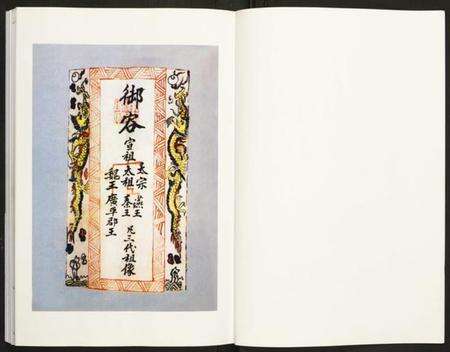 御容
宣祖
太宗 燕王
太祖 秦王
魏王廣平郡王
三代祖像